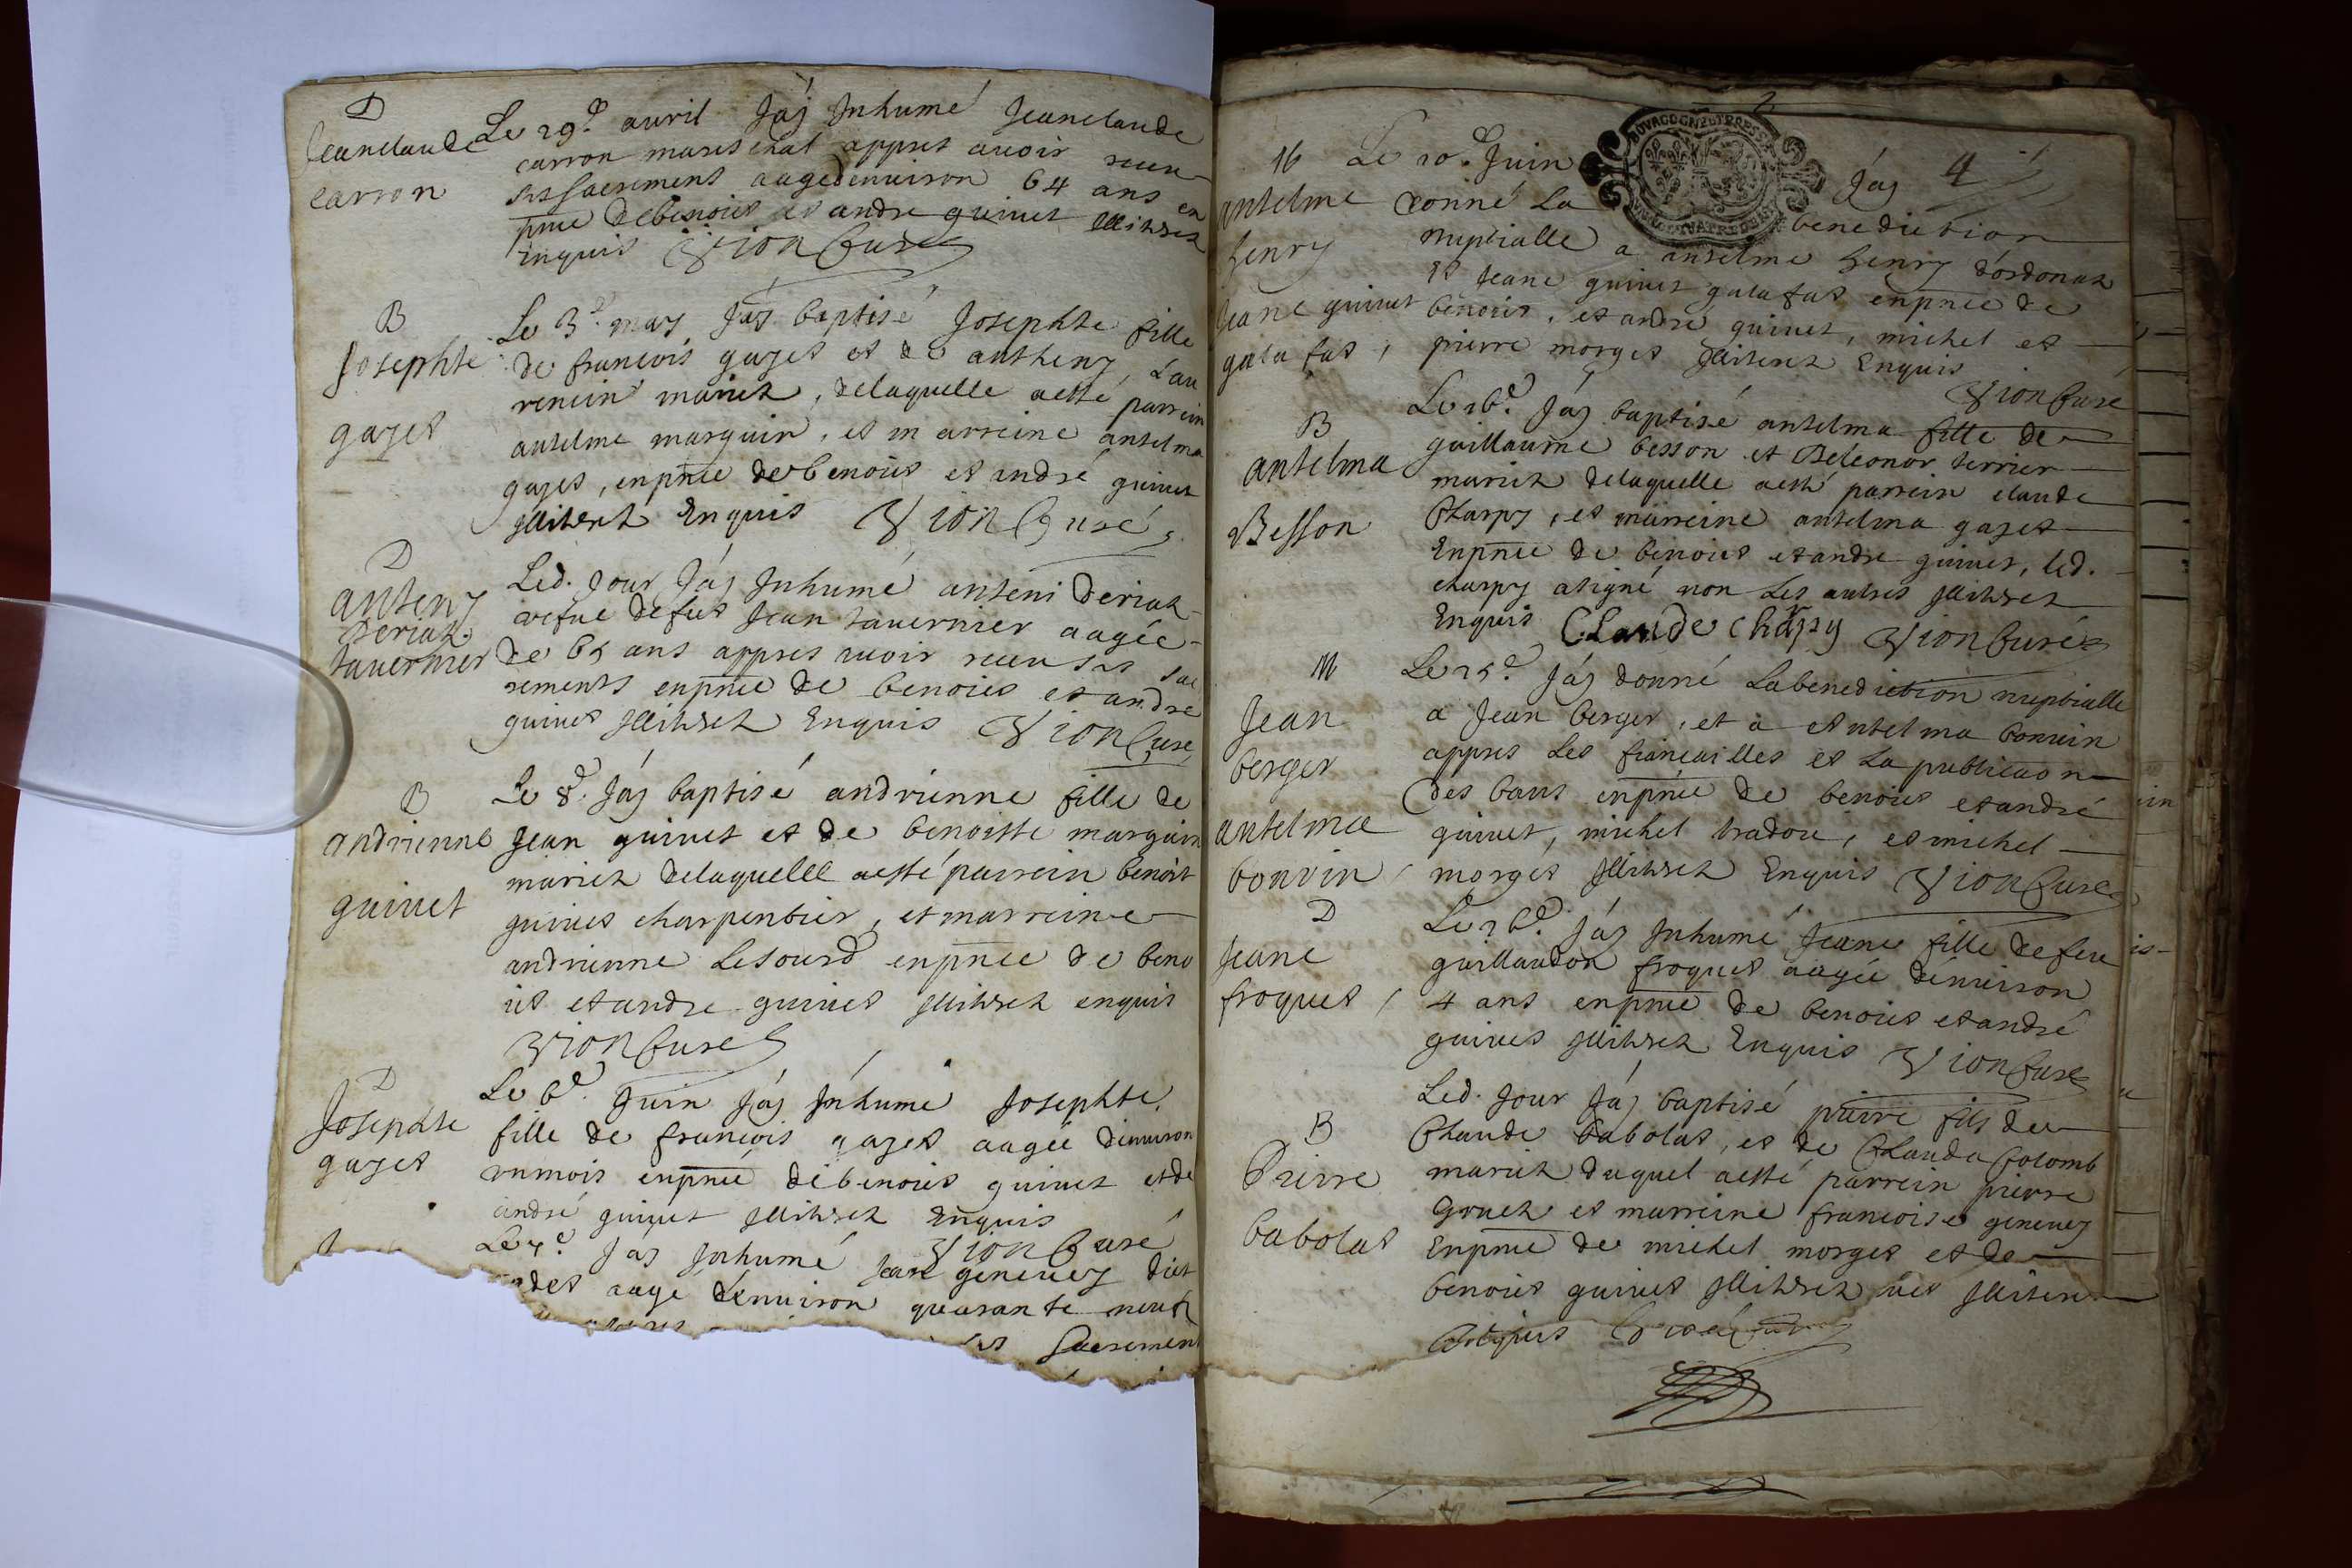 D
Jeanclaude
carron
Le 29.e auril Jáj Inhumé Jeanclaude
carron mareschal appres auoir receu
ses sacrement aagé denuiron 64 ans en
pnce de benoict et andre guinet illitrez
Enquis Vion Curé
B
Josephte
gajet
Le 3.e may Jáj baptisé Josephte fille
de francois gajet et de antheny Lau
rencin mariez, delaquelle aesté parrein
antelme marguin, et marreine antelma
gajet, enpnce de benoict et andré guinet
illitrez Enquis Vion Curé
D
anteny
deriaz
tauernier
Led. Jour Jáj Inhumé anteni deriaz
vefue defut Jean tauernier aagée
de 65 ans appres auoir receu ses sac
rements enpnce de benoict et andre
guinet illitrez Enquis Vion Curé
B
andrienne
guinet
Le 8.e Jáj baptisé andrienne fille de
Jean guinet et de benoitte marguin
mariez delaquelle aesté parrein benoit
guinet charpentier, et marreine
andrienne Lesourd enpnce de beno
ict et andre guinet illitrez enquis
Vion Curé
D
Josephte
gajet
Le 6.e Juin Jáj Inhumé Josephte
fille de francois gajet aagée denuiron
un mois enpnce de benoict guinet et de
andré guinet illitrez Enquis
Vion Curé
Le 7.e Jáj Inhumé Jean geneuey dict
aagé denuiron quarante neuf
sacrement
4
M
antelme
henry
Jeane guinet
galafat,
Le 10.e Juin Jáj
donné La benediction
nuptialle a antelme henry dordonaz
et Jeane guinet galafat enpnce de
benoict, et andré guinet, michel et
pierre morget illiterez Enquis
Vion Curé
B
antelma
Besson
Le 16.e Jáj baptisé antelma fille de
guillaume besson et deleonor terrier
mariez delaquelle aesté parrein claude
Charpy, et marreine antelma gajet
Enpnce de benoict et andre guinet, led.
charpy asigné non Les autres illitrez
Enquis Claude Charpy Vion Curé
M
Jean
berger
antelma
bonvin
Le 25.e Jáj donné Labenediction nuptialle
a Jean berger, et à Antelma bonuin
appres Les fiancailles et La publicaon
des bans enpnce de benoict et andré
guinet, michel tradou, et michel
morget illitrez Enquis Vion Curé
D
Jeane
froquet,
Le 26.e Jáj Inhumé Jeane fille de feu
guillaudon froquet aagée denuiron
4 ans enpnce de benoict et andré
guinet illitrez Enquis Vion Curé
B
Pierre
babolat
Led. Jour Jáj baptisé pierre fils de
Claude babolat, et de Clauda Colomb
mariez duquel aesté parrein pierre
Gouez et marreine francoise geneuey
Enpnce de michel morget et de
benoict guinet illitrez
Enquis